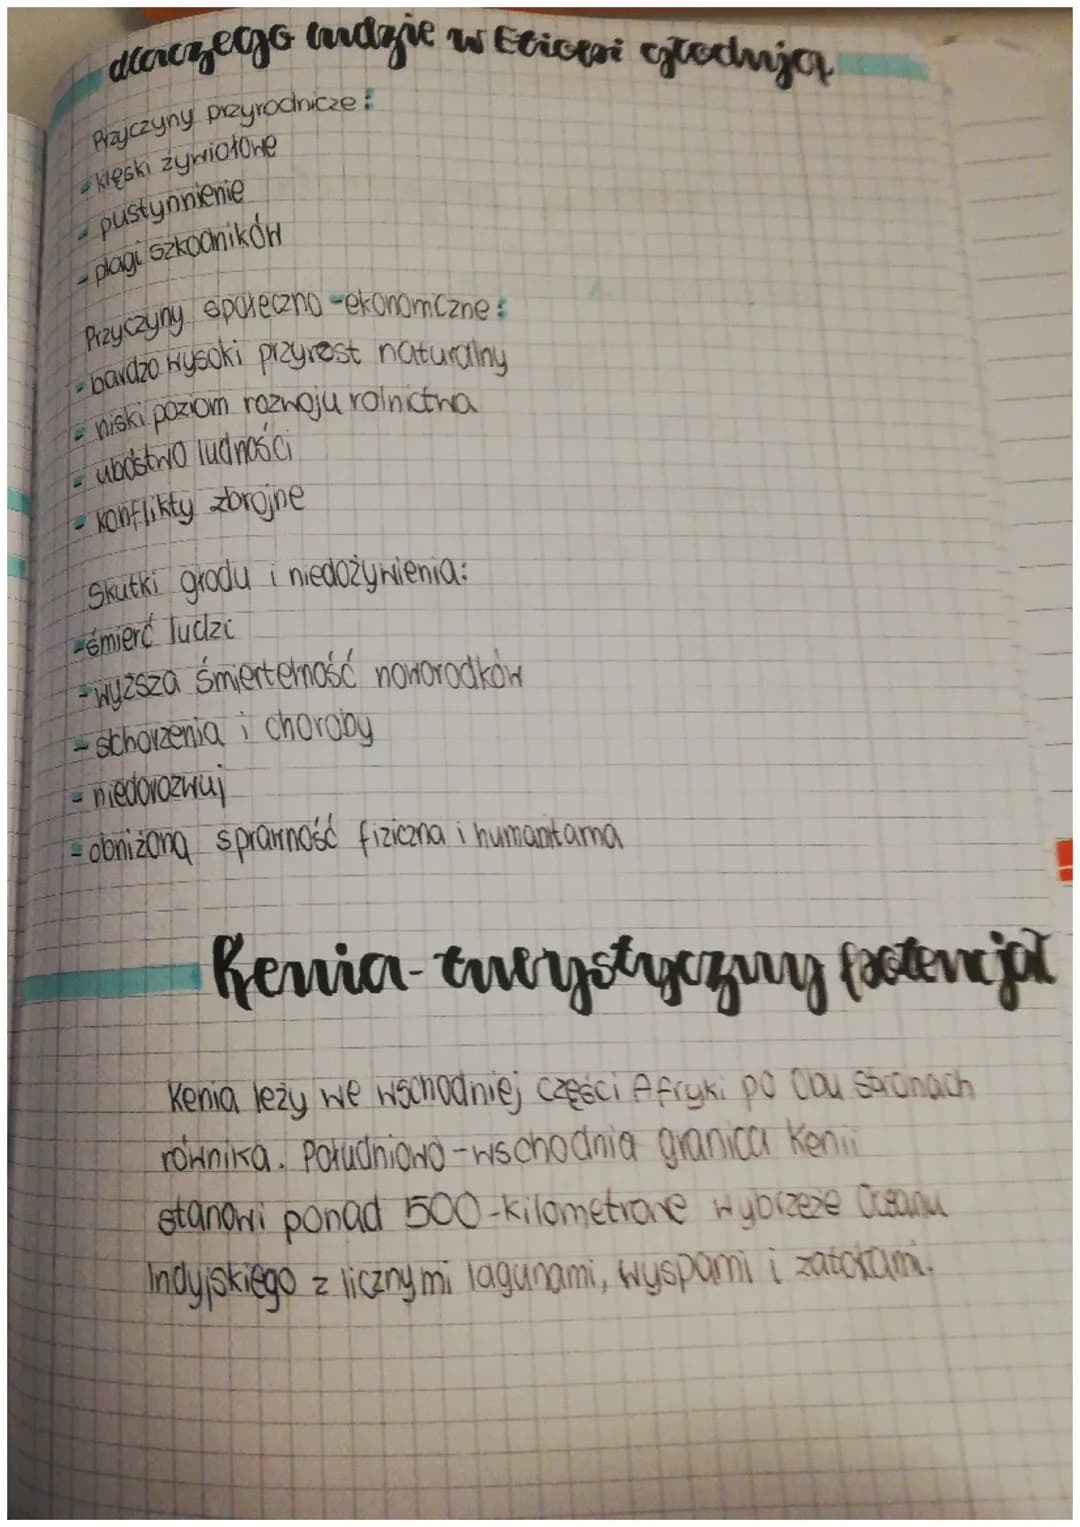 dlaczego ludzie w Etiopi głodują
Przyczyny przyrodnicze:
- klęski żywiołowe
- pustynnienie
- plagi szkodników
Przyczyny społeczno-ekonomiczne:
- bardzo wysoki przyrost naturalny
- niski poziom rozwoju rolnictwa
- ubóstwo ludności
- konflikty zbrojne
Skutki głodu i niedożywienia:
- śmierć ludzi
- wyższa śmiertelność noworodków
- schorzenia i choroby
- niedorozwuj
- obniżoną sprawność fiziczna i humanitarna
Kenia - turystyczny potencjał
Kenia leży we wschodniej części Afryki po obu stronach
równika. Południowo-wschodnia granica Kenii
stanowi ponad 500-kilometrowe wybrzeże Oceanu
Indyjskiego z licznymi lagunami, wyspami i zatokami.